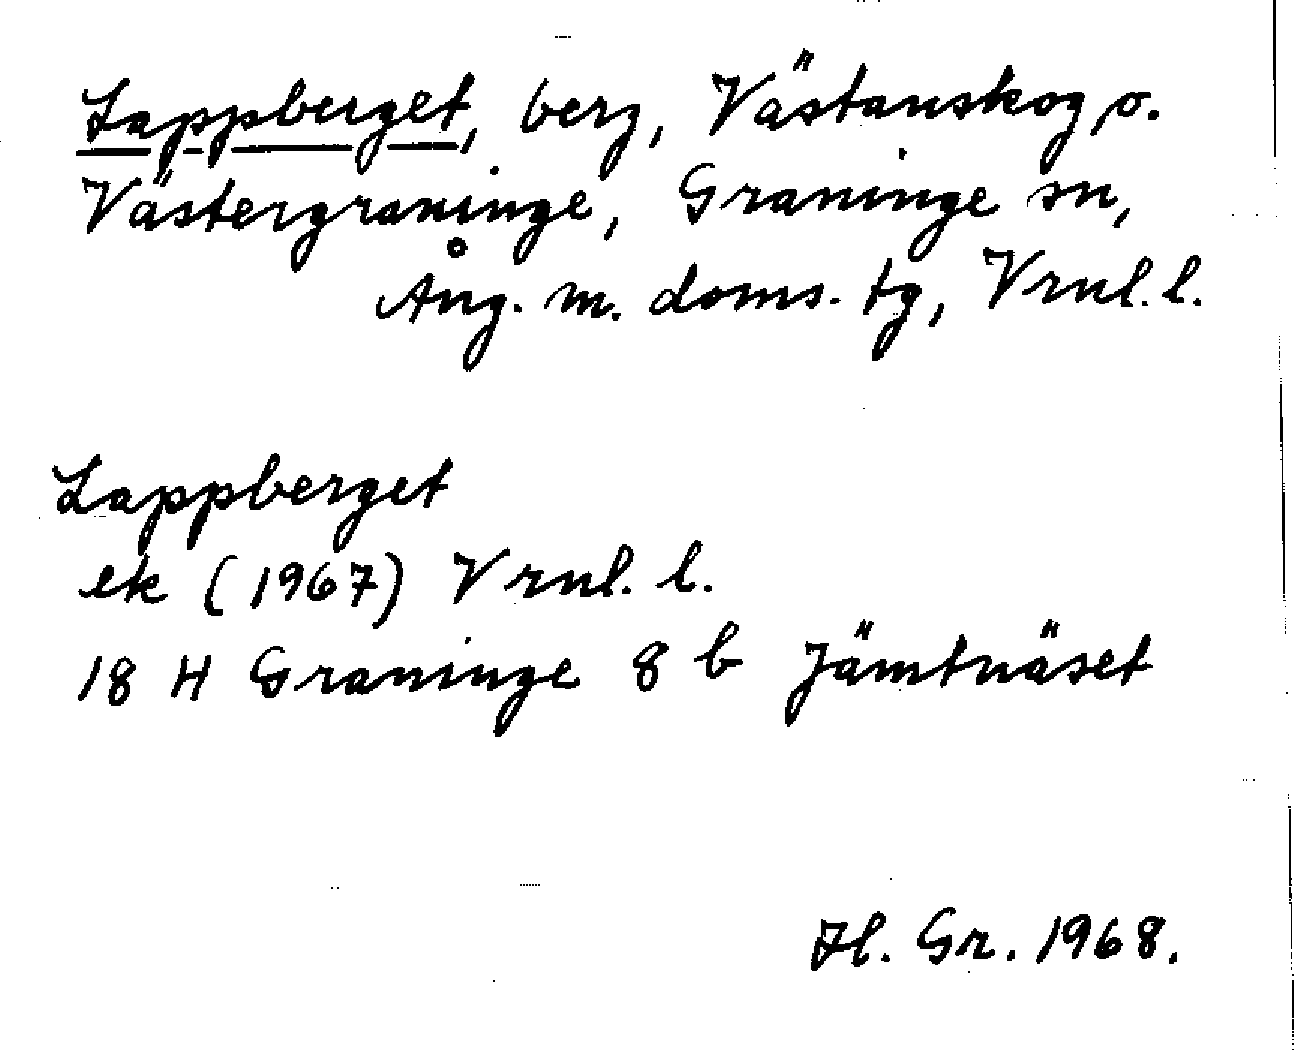 Lappberget, berg, Västanskog o.
Västergraninge, Graninge sn,
Ång. m. doms. tg, Vrnl. l.
Lappberget
ek (1967) Vrnl. l.
18 H Graninge 8 b Jämtnäset
Hl. Gr. 1968.